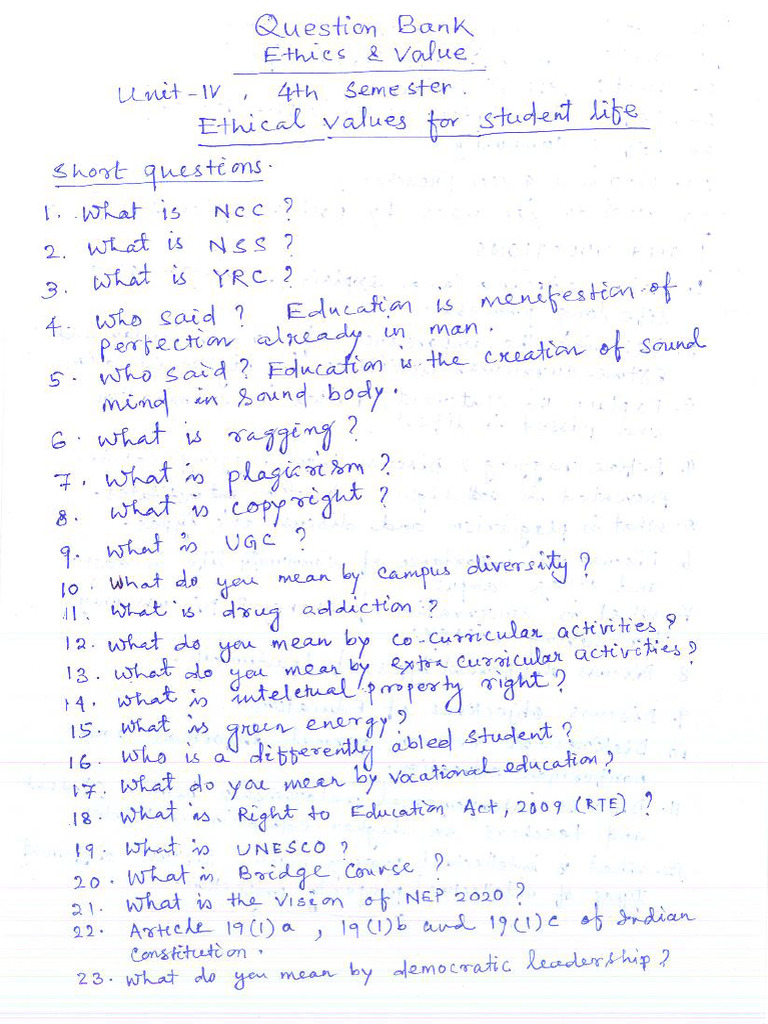 Question Bank
Ethics & Value
Unit-IV, 4th Semester.
Ethical values for student life
Short questions.
1. What is NCC ?
2. What is NSS ?
3. What is YRC ?
4. Who said ? Education is menifestion of
perfection already in man.
5. Who said ? Education is the creation of sound
mind in sound body.
6. What is ragging ?
7. What is plagiarism ?
8. What is copyright ?
9. What is UGC ?
10. What do you mean by campus diversity ?
11. What is drug addiction ?
12. What do you mean by co-curricular activities ?
13. What do you mean by extra curricular activities ?
14. What is inteletual property right ?
15. What is green energy ?
16. Who is a differently abled student ?
17. What do you mean by vocational education ?
18. What is Right to Education Act, 2009 (RTE) ?
19. What is UNESCO ?
20. What is Bridge Course ?
21. What is the Vision of NEP 2020 ?
22. Article 19(1)a, 19(1)b and 19(1)c of Indian
Constitution.
23. What do you mean by democratic leadership ?